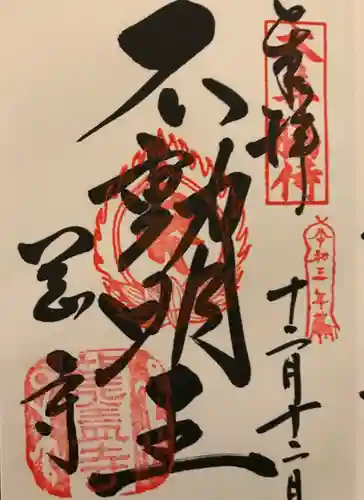 奉拝
令和三年
十二月十二日
不動明王
岡寺
龍蓋寺